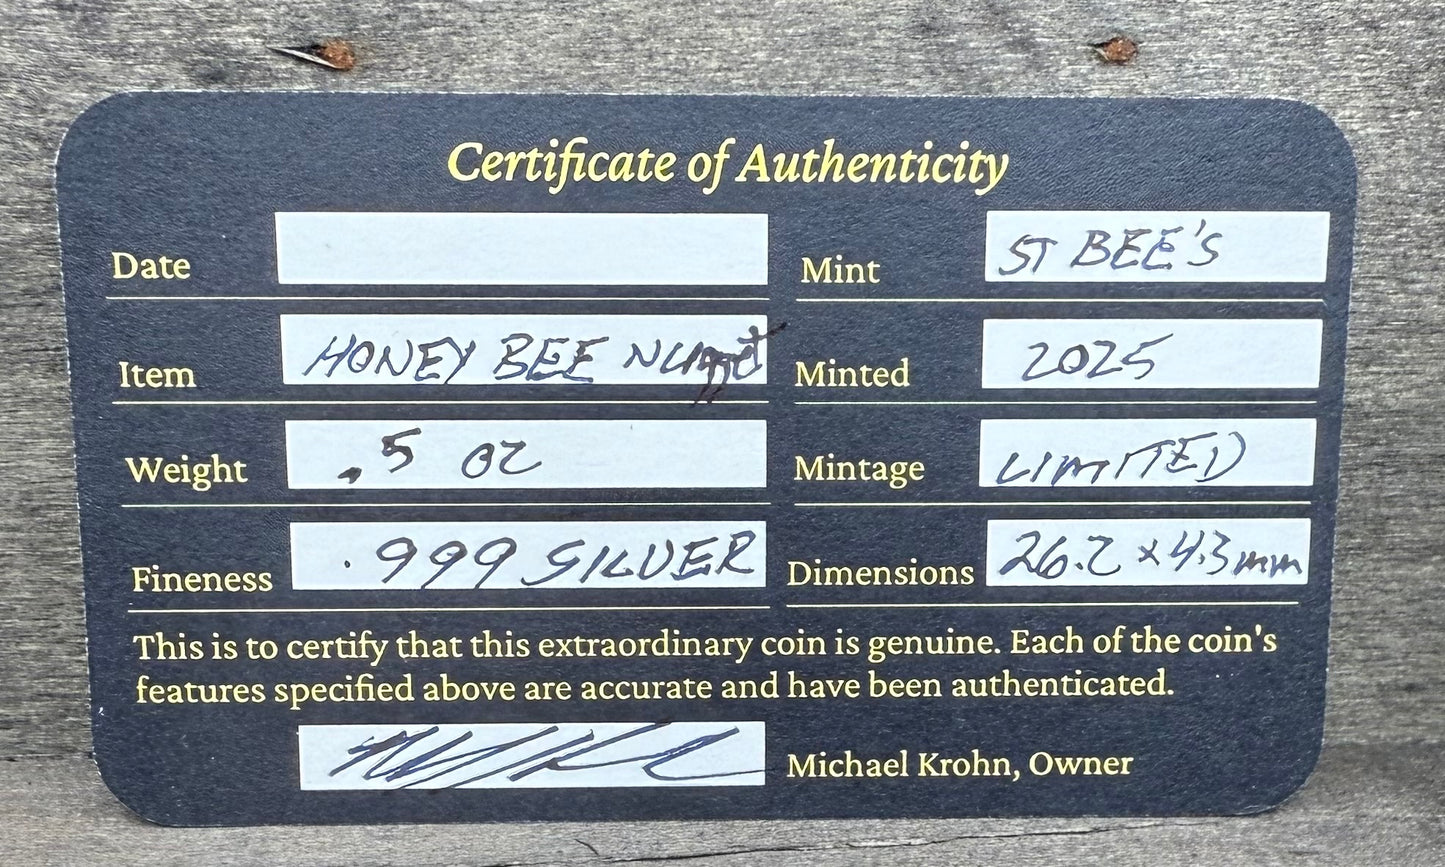 Certificate of Authenticity
Date
Mint ST BEE'S
Item HONEY BEE Nugget
Minted 2025
Weight .5 oz
Mintage LIMITED
Fineness .999 SILVER
Dimensions 26.2 x 4.3mm
This is to certify that this extraordinary coin is genuine. Each of the coin's
features specified above are accurate and have been authenticated.
Michael Krohn, Owner